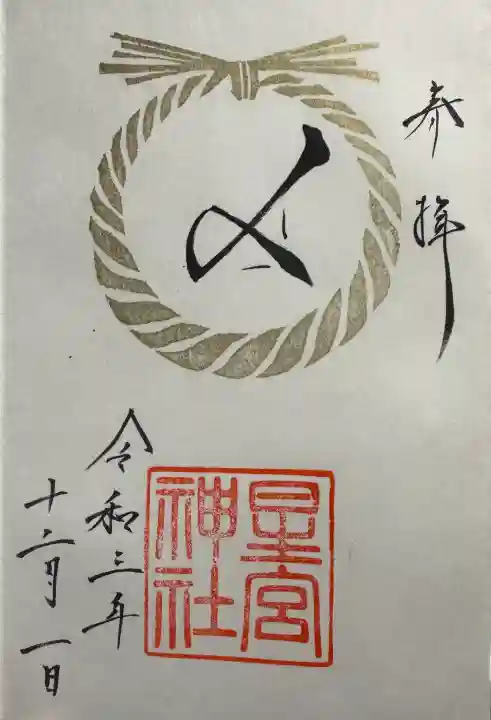 奉拝
〆
星宮
神社
令和三年
十二月一日